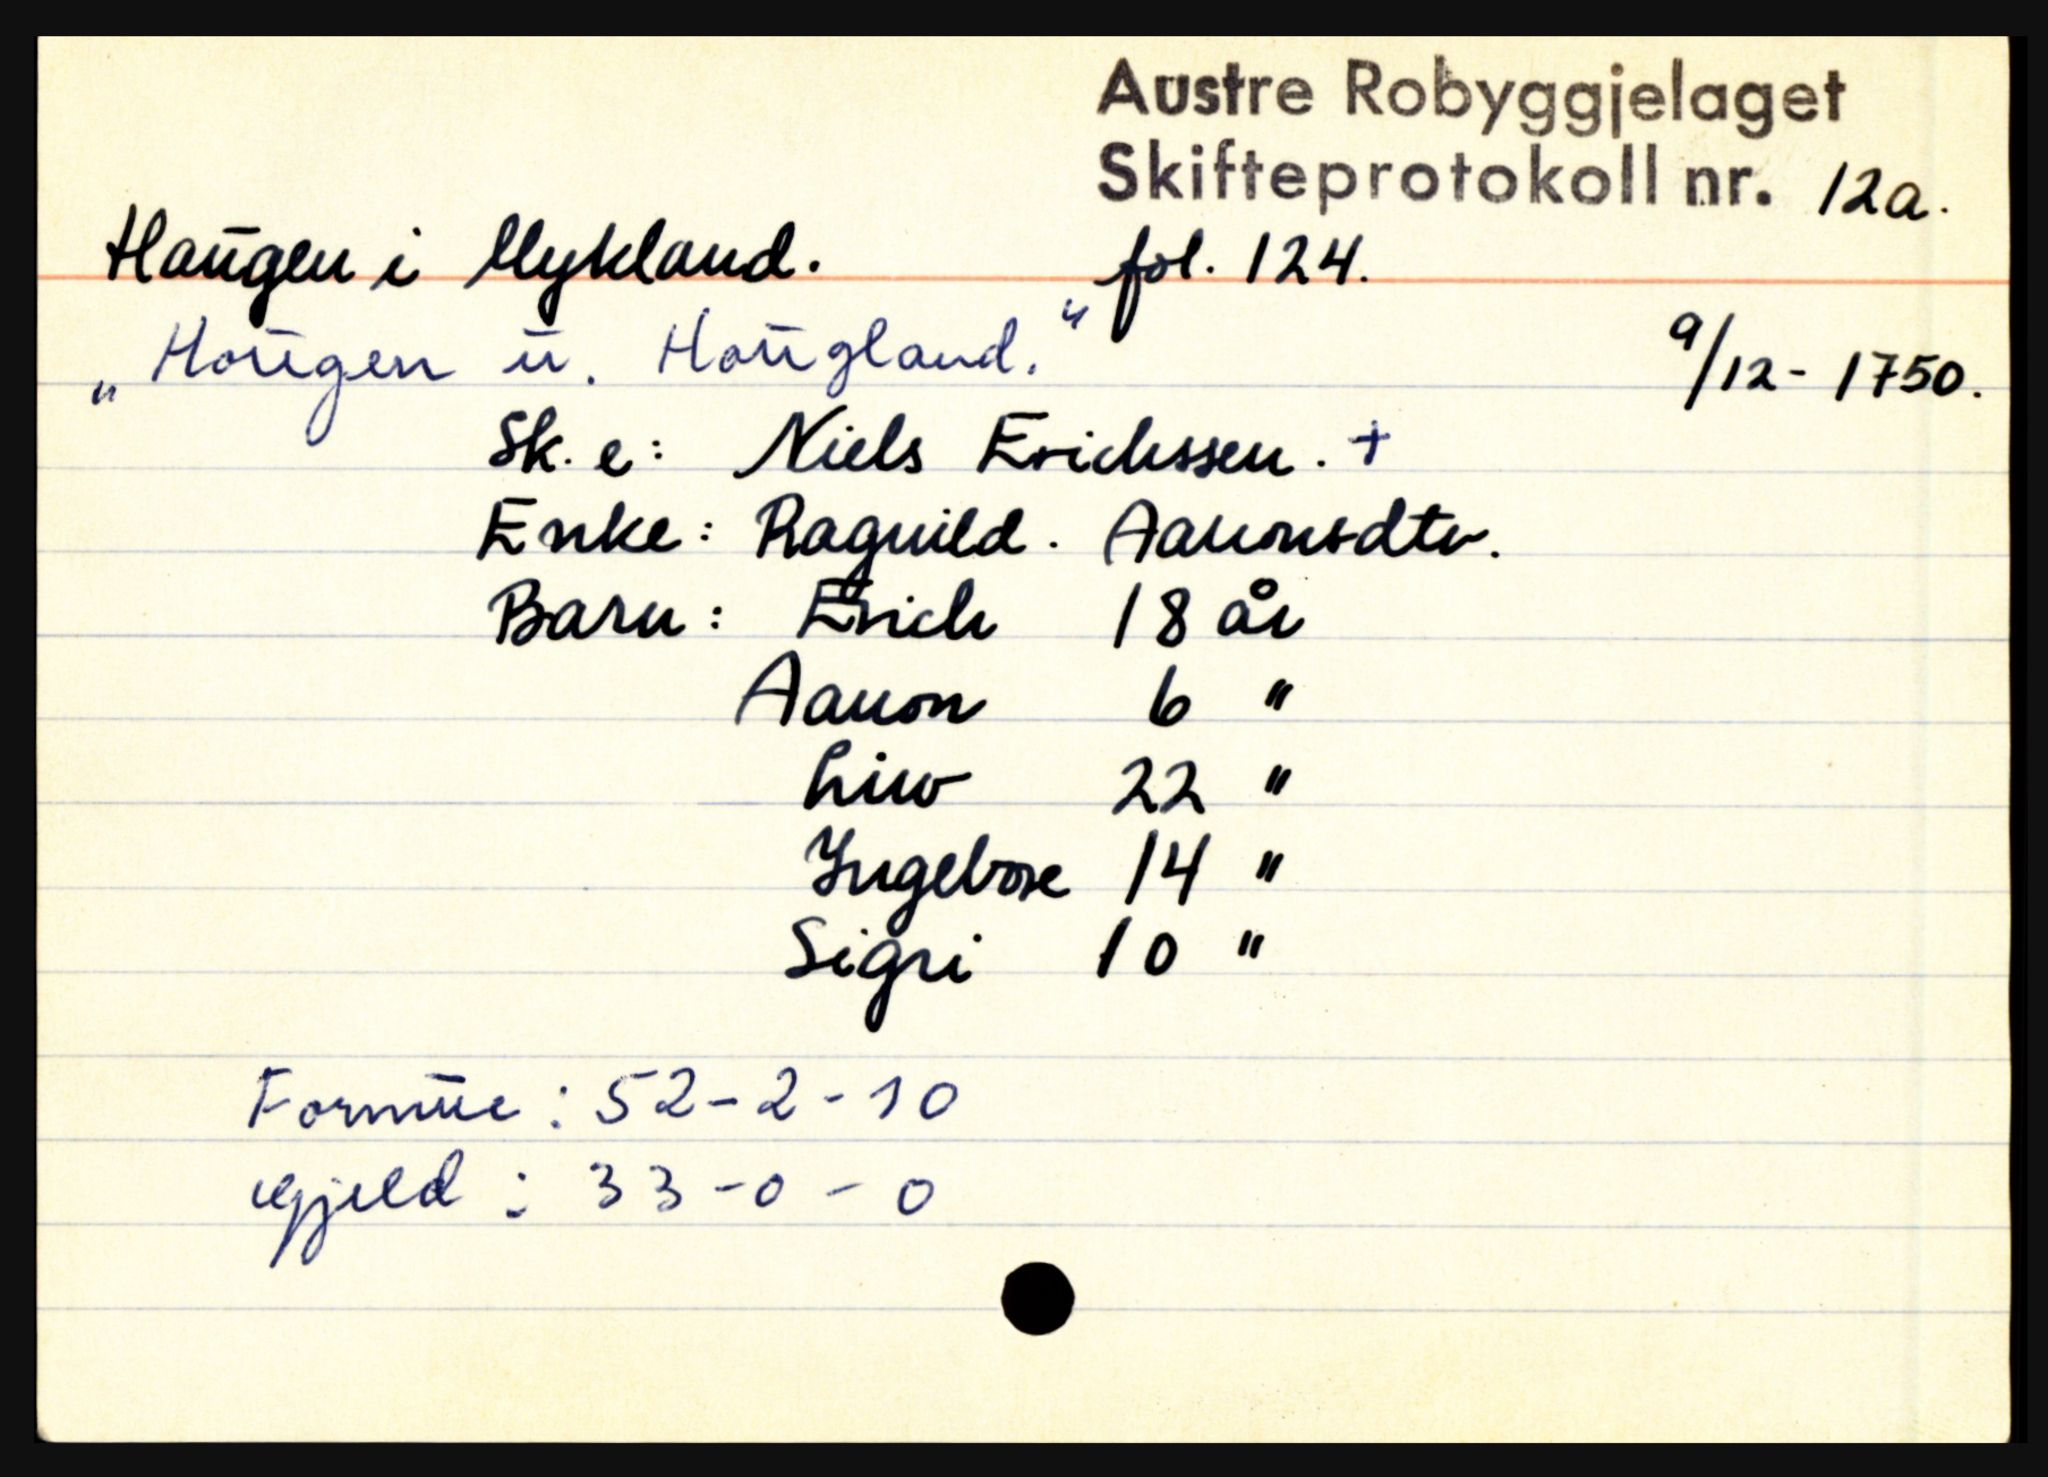 Austre Robyggjelaget
Skifteprotokoll nr. 12a.
Haugen i Mykland. fol. 124.
„Hougen u. Hougland." 9/12- 1750.
Sk. e: Niels Erichssen. +
Enke: Ragnild. Aanonsdtr.
Barn: Erich 18 år
Aanon 6 "
Liw 22 "
Ingebore 14 "
Sigri 10 "
Formue: 52-2-10
Gjeld: 33-0-0